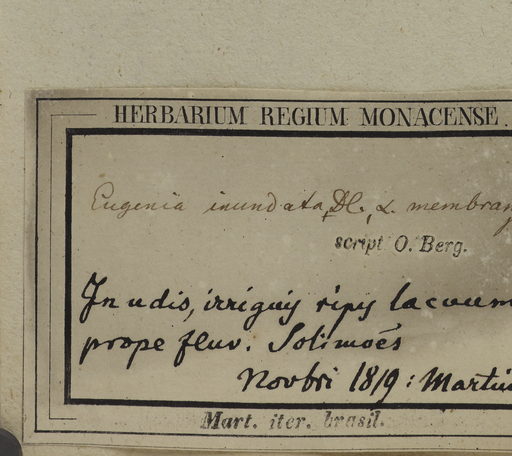 HERBARIUM REGIUM MONACENSE.
Eugenia inundata, DC., α. membran
script O. Berg.
In udis, irriguis ripis lacuum
prope fluv. Solimoës
Novbri 1819: Martiu
Mart. iter. brasil.